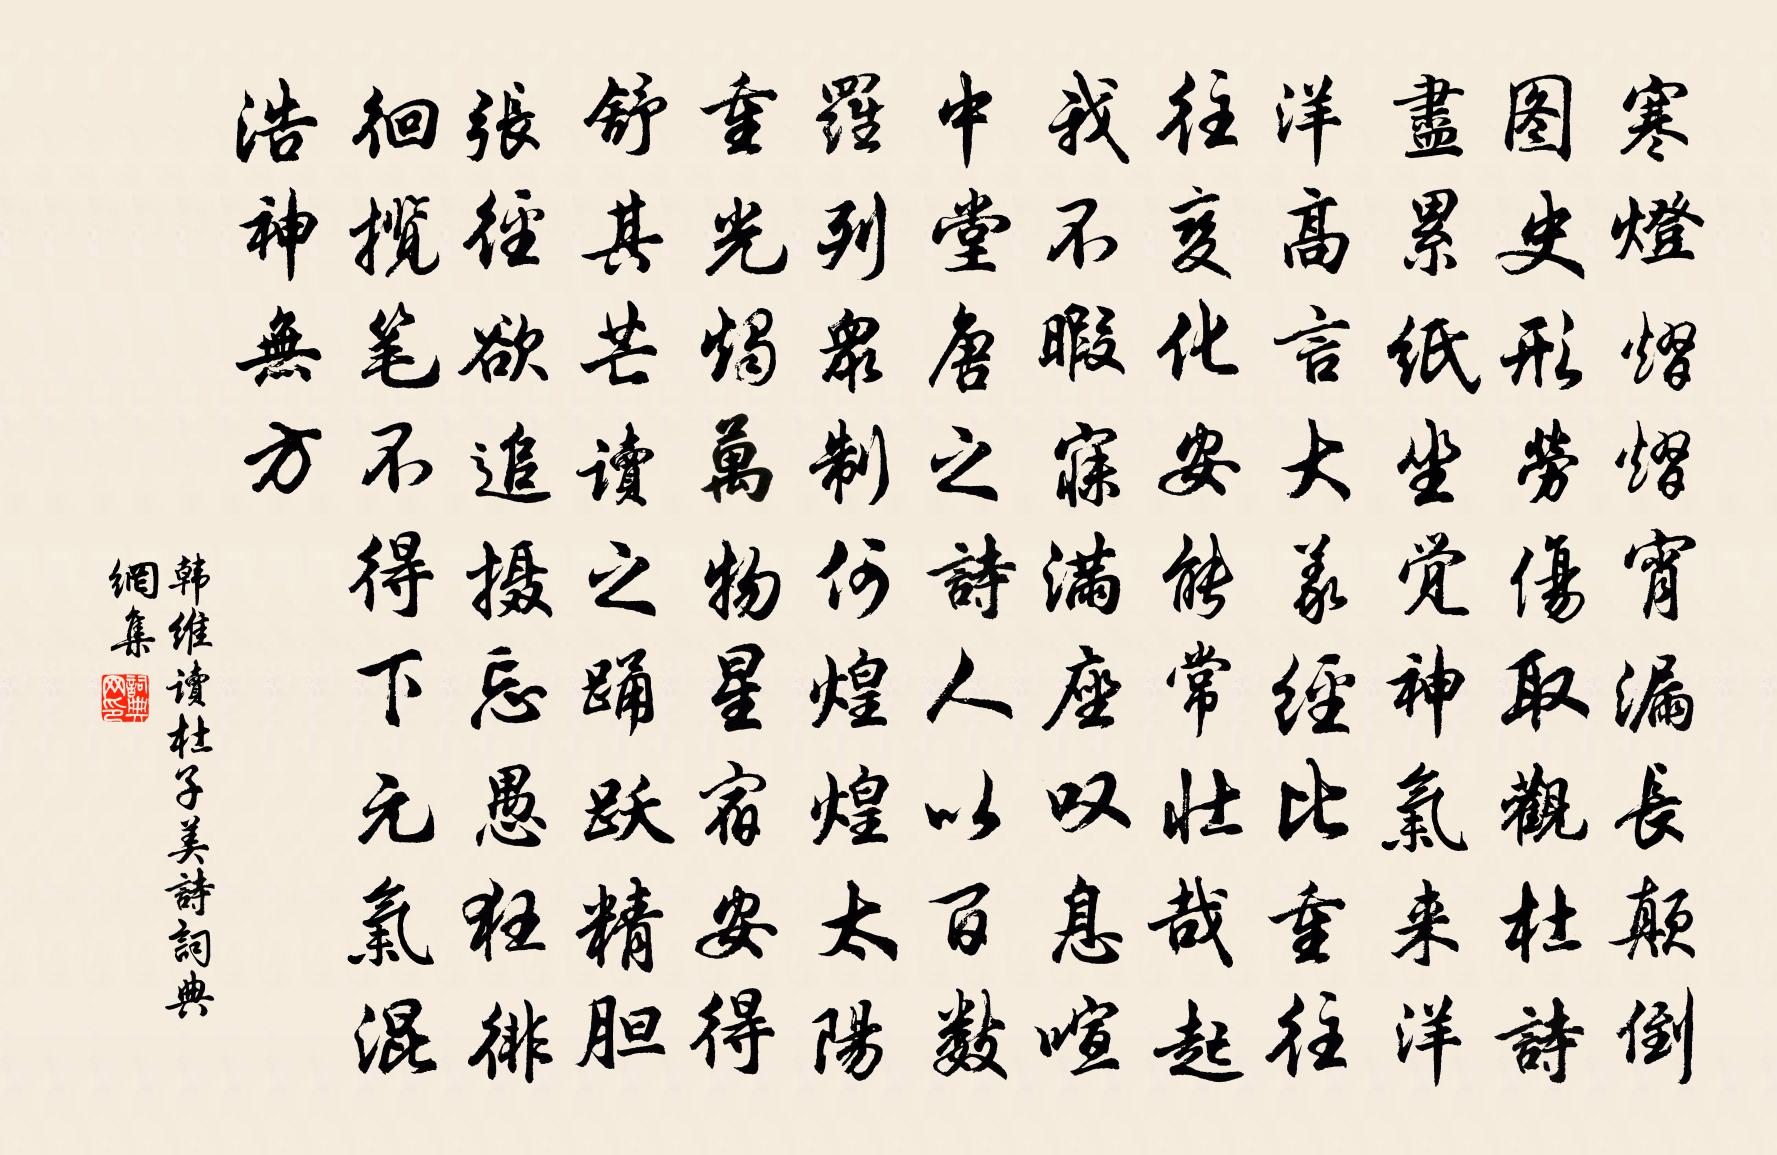 寒燈熠熠宵漏長顛倒
图史形勞傷取觀杜詩
盡累紙坐觉神氣来洋
洋高言大義經比重往
往变化安能常壮哉起
我不暇寐满座叹息喧
中堂唐之詩人以百数
羅列眾制何煌煌太陽
重光燭萬物星宿安得
舒其芒讀之踊跃精胆
張徑欲追摄忘愚狂徘
徊揽笔不得下元氣混
浩神無方
韩維讀杜子美詩詞典
網集
詞典
网